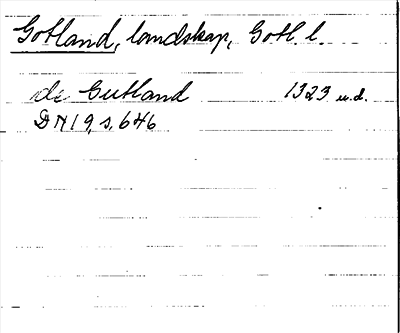 Gotland, landskap, Gotl. l.
de Gutland 1323 u.d.
DN 19, s. 646